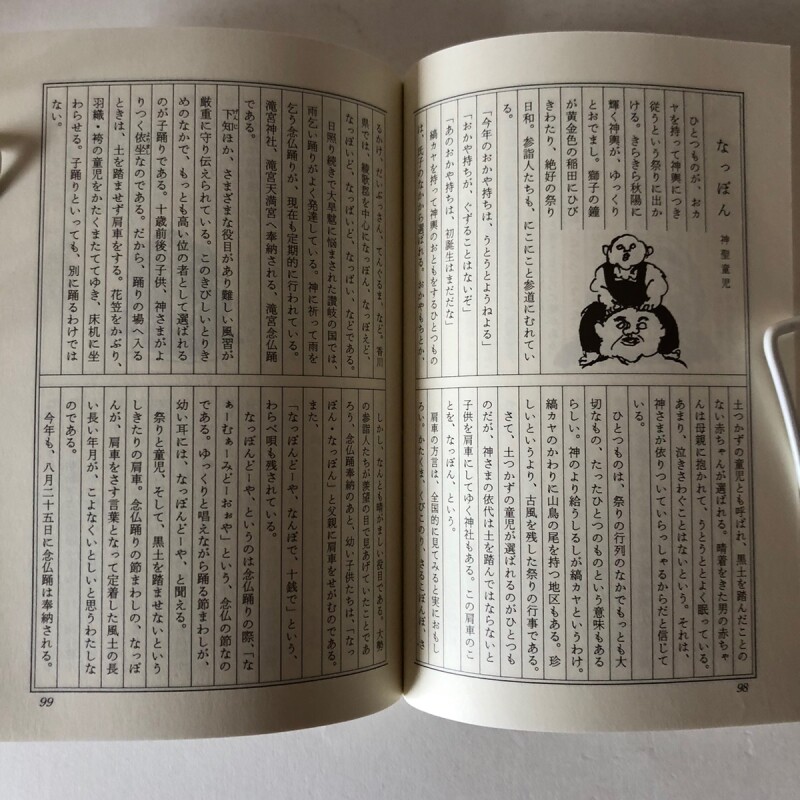 なっぽん
神聖童児
ひとつものが、おカ
ヤを持って神輿につき
従うという祭りに出か
ける。きらきら秋陽に
輝く神輿が、ゆっくり
とおでまし。獅子の鐘
が黄金色の稲田にひび
きわたり、絶好の祭り
日和。参詣人たちも、にこにこと参道にむれてい
る。
「今年のおかや持ちは、うとうとようねよる」
「おかや持ちが、ぐずることはないぞ」
「あのおかや持ちは、初誕生はまだだな」
縞カヤを持って神輿のおともをするひとつもの
は、氏子のなかから選ばれる。おかやもちとか、
土つかずの童児とも呼ばれ、黒土を踏んだことの
ない赤ちゃんが選ばれる。晴着をきた男の赤ちゃ
んは母親に抱かれて、うとうととよく眠っている。
あまり、泣きさわぐことはないという。それは、
神さまが依りついていらっしゃるからだと信じて
いる。
ひとつものは、祭りの行列のなかでもっとも大
切なもの、たったひとつのものという意味もある
らしい。神のより給うしるしが縞カヤというわけ。
縞カヤのかわりに山鳥の尾を持つ地区もある。珍
しいというより、古風を残した祭りの行事である。
さて、土つかずの童児が選ばれるのがひとつも
のだが、神さまの依代は土を踏んではならないと
子供を肩車にしてゆく神社もある。この肩車のこ
とを、なっぽん、という。
肩車の方言は、全国的に見てみると実におもし
ろい。かたくま、くびこのり、さるこぼんぼ、さ
98
るかけ、だいぶっさん、てんぐるま、など。香川
県では、綾歌郡を中心になっぽん、なっぽえど、
なっぽいど、なっぱいど、なっぱい、などである。
日照り続きで大旱魃に悩まされた讃岐の国では、
雨乞い踊りがよく発達している。神に祈って雨を
乞う念仏踊りが、現在も定期的に行われている。
滝宮神社、滝宮天満宮へ奉納される、滝宮念仏踊
である。
下知ほか、さまざまな役目があり難しい風習が
厳重に守り伝えられている。このきびしいとりき
めのなかで、もっとも高い位の者として選ばれる
のが子踊りである。十歳前後の子供、神さまがよ
りつく依坐なのである。だから、踊りの場へ入る
ときは、土を踏ませず肩車をする。花笠をかぶり、
羽織・袴の童児をかたくまたててゆき、床机に坐
わらせる。子踊りといっても、別に踊るわけでは
ない。
しかし、なんとも晴がましい役目である。大勢
の参詣人たちが羨望の目で見あげていたことであ
ろう、念仏踊奉納のあと、幼い子供たちは、「なっ
ぽん・なっぽん」と父親に肩車をせがむのである。
また、
「なっぽんどーや、なんぼで、十銭で」という、
わらべ唄も残されている。
なっぽんどーや、というのは念仏踊りの際、「な
あーむぁーみどーおぉや」という、念仏の節なの
である。ゆっくりと唱えながら踊る節まわしが、
幼い耳には、なっぽんどーや、と聞える。
祭りと童児、そして、黒土を踏ませないという
しきたりの肩車。念仏踊りの節まわしの、なっぽ
んが、肩車をさす言葉となって定着した風土の長
い長い年月が、こよなくいとしいと思うわたしな
のである。
今年も、八月二十五日に念仏踊は奉納される。
99